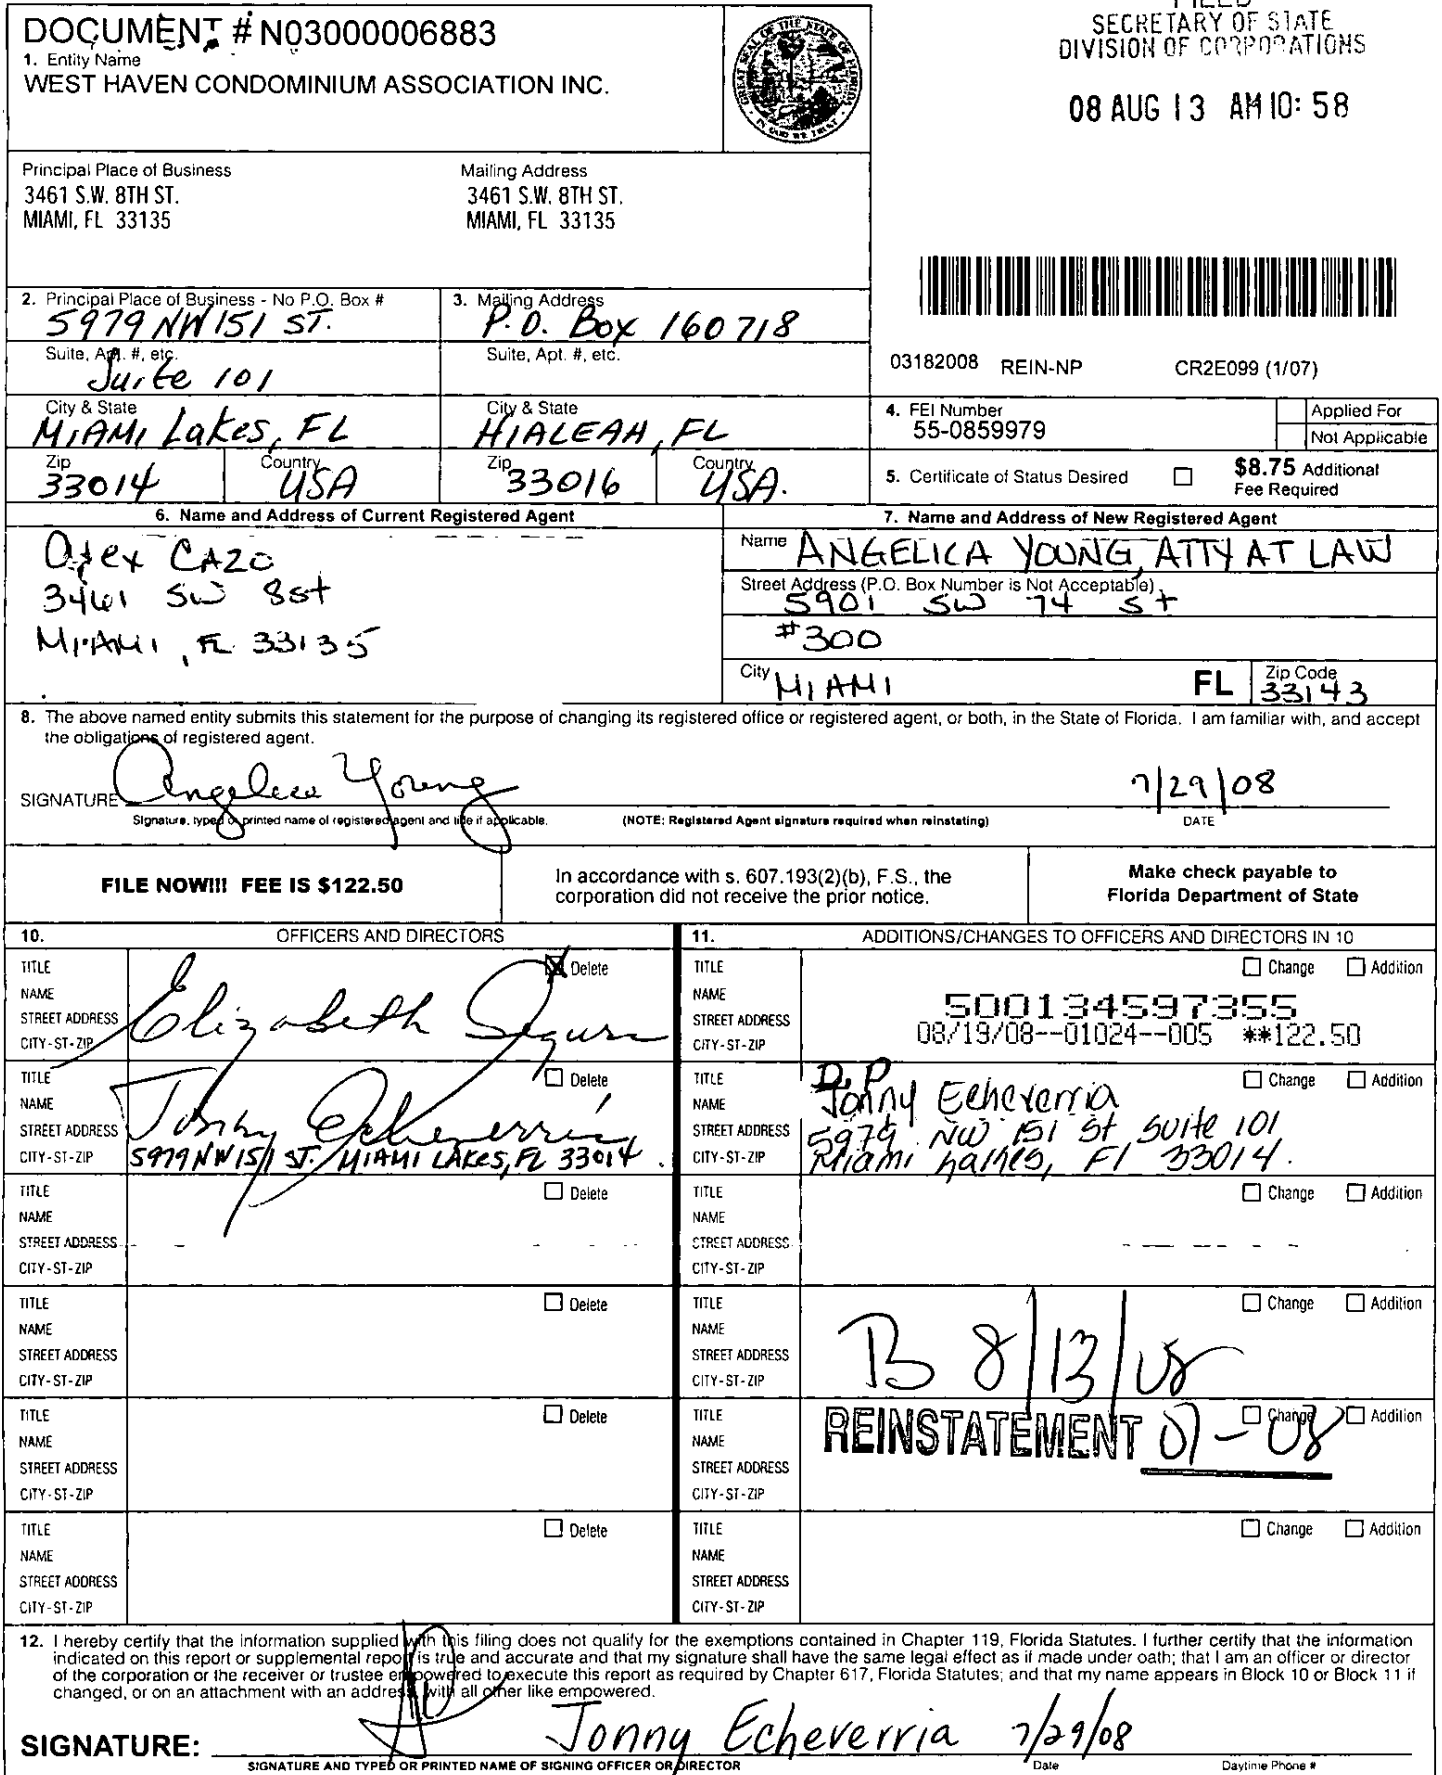 SECRETARY OF STATE
DIVISION OF CORPORATIONS
08 AUG 13 AM 10: 58
DOCUMENT # N03000006883
1. Entity Name
WEST HAVEN CONDOMINIUM ASSOCIATION INC.
GREAT SEAL OF THE STATE OF FLORIDA
IN GOD WE TRUST
Principal Place of Business
3461 S.W. 8TH ST.
MIAMI, FL 33135
Mailing Address
3461 S.W. 8TH ST.
MIAMI, FL 33135
2. Principal Place of Business - No P.O. Box #
5979 NW 151 ST.
Suite, Apt. #, etc.
Suite 101
City & State
MIAMI Lakes, FL
Zip
33014
Country
USA
3. Mailing Address
P.O. Box 160718
Suite, Apt. #, etc.
City & State
HIALEAH, FL
Zip
33016
Country
USA.
03182008 REIN-NP CR2E099 (1/07)
4. FEI Number
55-0859979
Applied For
Not Applicable
5. Certificate of Status Desired
$8.75 Additional
Fee Required
6. Name and Address of Current Registered Agent
CAZO
3461 SW 8st
MIAMI, FL 33135
7. Name and Address of New Registered Agent
Name ANGELICA YOUNG, ATTY AT LAW
Street Address (P.O. Box Number is Not Acceptable)
5901 SW 74 St
#300
City MIAMI FL Zip Code 33143
8. The above named entity submits this statement for the purpose of changing its registered office or registered agent, or both, in the State of Florida. I am familiar with, and accept
the obligations of registered agent.
SIGNATURE Angelica Young 7/29/08
Signature, typed or printed name of registered agent and title if applicable. (NOTE: Registered Agent signature required when reinstating) DATE
FILE NOW!!! FEE IS $122.50
In accordance with s. 607.193(2)(b), F.S., the
corporation did not receive the prior notice.
Make check payable to
Florida Department of State
10. OFFICERS AND DIRECTORS
TITLE X Delete
NAME
STREET ADDRESS Elizabeth Segura
CITY-ST-ZIP
TITLE Delete
NAME
STREET ADDRESS Jonny Echeverria
CITY-ST-ZIP 5979 NW 151 ST. MIAMI LAKES, FL 33014.
TITLE Delete
NAME
STREET ADDRESS
CITY-ST-ZIP
TITLE Delete
NAME
STREET ADDRESS
CITY-ST-ZIP
TITLE Delete
NAME
STREET ADDRESS
CITY-ST-ZIP
TITLE Delete
NAME
STREET ADDRESS
CITY-ST-ZIP
11. ADDITIONS/CHANGES TO OFFICERS AND DIRECTORS IN 10
TITLE Change Addition
NAME 500134597355
STREET ADDRESS 08/19/08--01024--005 **122.50
CITY-ST-ZIP
TITLE D, P Change Addition
NAME Jonny Echeverria
STREET ADDRESS 5979 NW 151 St Suite 101
CITY-ST-ZIP Miami Lakes, Fl 33014.
TITLE Change Addition
NAME
STREET ADDRESS
CITY-ST-ZIP
TITLE Change Addition
NAME
STREET ADDRESS B 8/13/08
CITY-ST-ZIP
TITLE Change Addition
NAME REINSTATEMENT 07-08
STREET ADDRESS
CITY-ST-ZIP
TITLE Change Addition
NAME
STREET ADDRESS
CITY-ST-ZIP
12. I hereby certify that the information supplied with this filing does not qualify for the exemptions contained in Chapter 119, Florida Statutes. I further certify that the information
indicated on this report or supplemental report is true and accurate and that my signature shall have the same legal effect as if made under oath; that I am an officer or director
of the corporation or the receiver or trustee empowered to execute this report as required by Chapter 617, Florida Statutes; and that my name appears in Block 10 or Block 11 if
changed, or on an attachment with an address, with all other like empowered.
SIGNATURE: Jonny Echeverria 7/29/08
SIGNATURE AND TYPED OR PRINTED NAME OF SIGNING OFFICER OR DIRECTOR Date Daytime Phone #